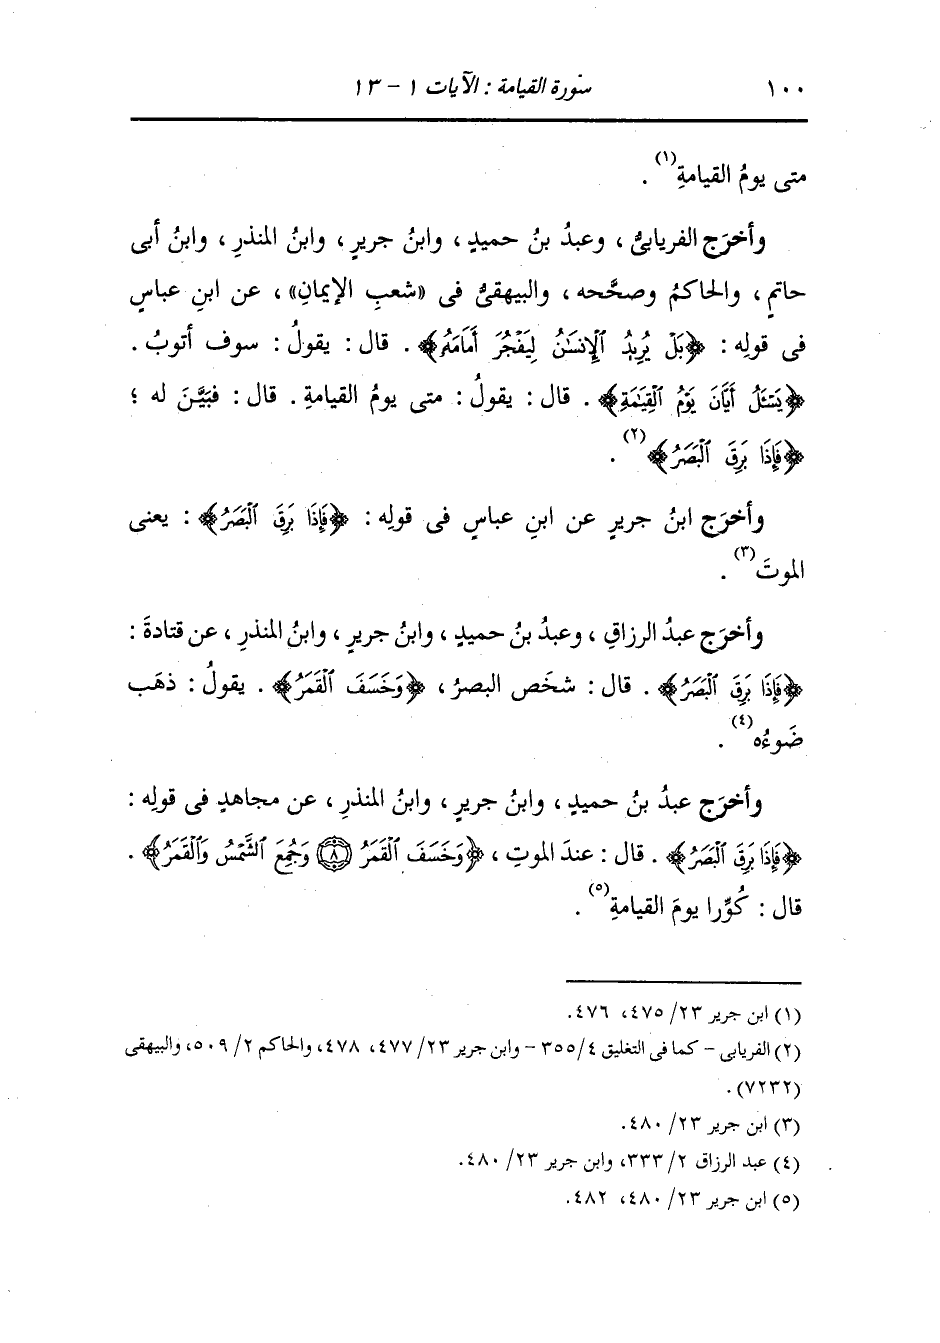 ١٠٠ سورة القيامة : الآيات ١ - ١٣
متى يومُ القيامةِ(١) .
وأخرَج الفريابىُّ ، وعبدُ بنُ حميدٍ ، وابنُ جريرٍ ، وابنُ المنذرِ ، وابنُ أبى
حاتمٍ ، والحاكمُ وصحَّحه ، والبيهقىُّ فى «شعبِ الإيمانِ» ، عن ابنِ عباسٍ
فى قولِه : ﴿بَلْ يُرِيدُ ٱلْإِنسَٰنُ لِيَفْجُرَ أَمَامَهُۥ﴾ . قال : يقولُ : سوف أتوبُ .
﴿يَسْـَٔلُ أَيَّانَ يَوْمُ ٱلْقِيَٰمَةِ﴾ . قال : يقولُ : متى يومُ القيامةِ . قال : فبَيَّنَ له ؛
﴿فَإِذَا بَرِقَ ٱلْبَصَرُ﴾(٢) .
وأخرَج ابنُ جريرٍ عن ابنِ عباسٍ فى قولِه : ﴿فَإِذَا بَرِقَ ٱلْبَصَرُ﴾ : يعنى
الموتَ(٣) .
وأخرَج عبدُ الرزاقِ ، وعبدُ بنُ حميدٍ ، وابنُ جريرٍ ، وابنُ المنذرِ ، عن قتادةَ :
﴿فَإِذَا بَرِقَ ٱلْبَصَرُ﴾ . قال : شخَص البصرُ ، ﴿وَخَسَفَ ٱلْقَمَرُ﴾ . يقولُ : ذهَب
ضَوءُه(٤) .
وأخرَج عبدُ بنُ حميدٍ ، وابنُ جريرٍ ، وابنُ المنذرِ ، عن مجاهدٍ فى قولِه :
﴿فَإِذَا بَرِقَ ٱلْبَصَرُ﴾ . قال : عندَ الموتِ ، ﴿وَخَسَفَ ٱلْقَمَرُ ۝٨ وَجُمِعَ ٱلشَّمْسُ وَٱلْقَمَرُ﴾ .
قال : كُوِّرا يومَ القيامةِ(٥) .
(١) ابن جرير ٢٣/ ٤٧٥، ٤٧٦.
(٢) الفريابى - كما فى التغليق ٤/ ٣٥٥ - وابن جرير ٢٣/ ٤٧٧، ٤٧٨، والحاكم ٢/ ٥٠٩، والبيهقى
(٧٢٣٢) .
(٣) ابن جرير ٢٣/ ٤٨٠.
(٤) عبد الرزاق ٢/ ٣٣٣، وابن جرير ٢٣/ ٤٨٠.
(٥) ابن جرير ٢٣/ ٤٨٠، ٤٨٢.